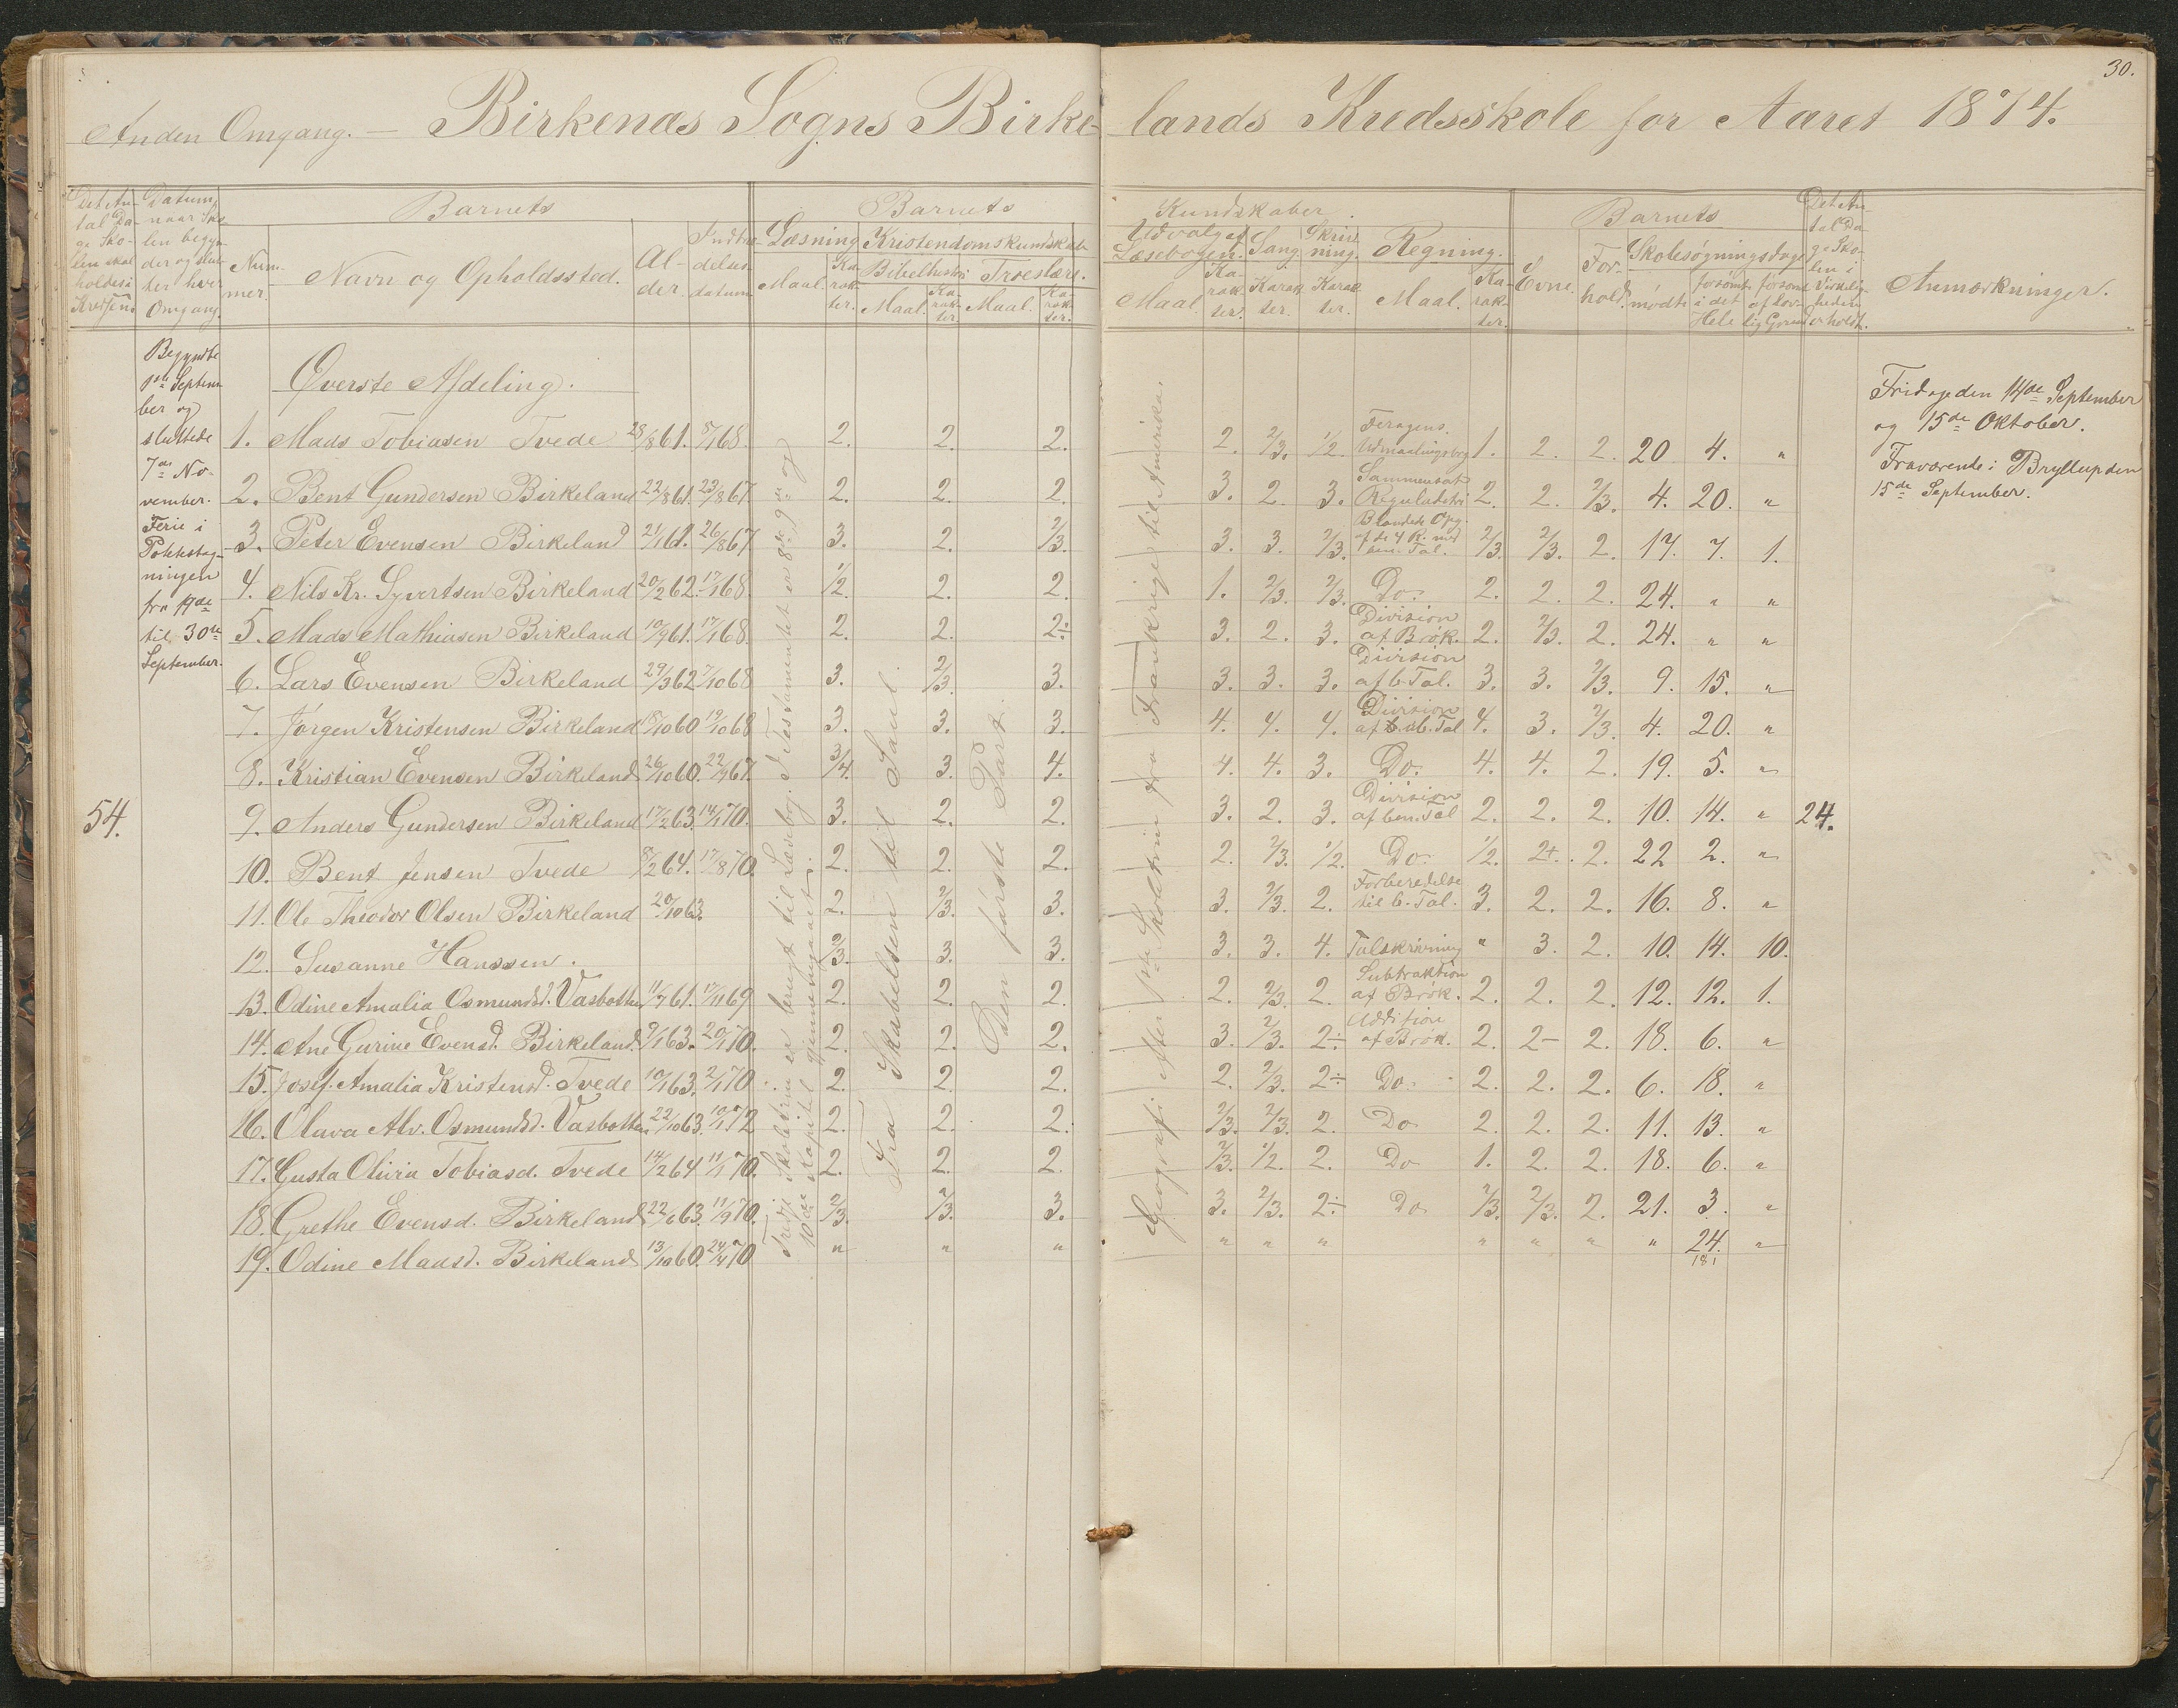 30.
Anden Omgang. – Birkenæs Sogns Birkelands Kredsskole for Aaret 1874.
Det Antal Dage Skolen skal holdes i Kredsen
Datum, naar Skolen begynder og slutter hver Omgang.
Barnets
Nummer.
Navn og Opholdssted.
Alder.
Indtrædelsesdatum
Barnets
Læsning
Maal.
Karakter.
Kristendomskundskab
Bibelhistori
Maal.
Karakter.
Troeslære.
Maal.
Karakter.
Kundskaber.
Udvalget Læsebogen.
Maal.
Karakter.
Sang.
Karakter.
Skrivning.
Karakter.
Regning.
Maal.
Karakter.
Barnets
Evne.
Forhold.
Skolesøgningsdage
mødte
forsømte i det Hele
forsømt af lovlig Grund
Det Antal Dage Skolen i Virkeligheden er holdt.
Anmærkninger.
Begyndte
1ste Septem
ber og
sluttede
7de No-
vember.
Ferie i
Potetestag-
ningen
fra 19de
til 30te
September.
54.
Øverste Afdeling.
1. Mads Tobiasen Tvede 28/8 61. 8/1 68. 2. 2. 2. 2. 2/3. 1/2. Feragens. Udmaalingsbog 1. 2. 2. 20 4. "
2. Bent Gundersen Birkeland 22/8 61. 23/8 67. 2. 2. 2. 3. 2. 3. Sammensat Reguladetri 2. 2. 2/3. 4. 20. "
3. Peter Evensen Birkeland 21/1 61. 26/8 67 3. 2. 2/3. 3. 3. 2/3. Blandede Opg. af de 4 R. med ben. Tal. 2/3. 2/3. 2. 17. 7. 1.
4. Nils Kr. Syvertsen Birkeland 20/2 62. 17/1 68. 1/2. 2. 2. 1. 2/3. 2/3. Do. 2. 2. 2. 24. " "
5. Mads Mathiasen Birkeland 10/9 61. 17/1 68. 2. 2. 2÷ 3. 2. 3. Division af Brøk. 2. 2/3. 2. 24. " "
6. Lars Evensen Birkeland 29/3 62 7/10 68 3. 2/3. 3. 3. 3. 3. Division af b. Tal. 3. 3. 2/3. 9. 15. "
7. Jørgen Kristensen Birkeland 18/10 60 19/10 68 3. 3. 3. 4. 4. 4. Division af ub. Tal 4. 3. 2/3. 4. 20. "
8. Kristian Evensen Birkeland 26/10 60. 22/9 67. 3/4. 3. 4. 4. 4. 3. Do. 4. 4. 2. 19. 5. "
9. Anders Gundersen Birkeland 17/2 63. 14/1 70. 3. 2. 2. 3. 2. 3. Division af ben. Tal 2. 2. 2. 10. 14. " 24.
10. Bent Jensen Tvede 8/2 64. 17/8 70. 2. 2. 2. 2. 2/3. 1/2. Do. 1/2. 2+. 2. 22 2. "
11. Ole Theodor Olsen Birkeland 20/10 63. 2. 2/3. 3. 3. 2/3. 2. Forberedelse til b. Tal. 3. 2. 2. 16. 8. "
12. Susanne Hanssen. 2/3. 3. 3. 3. 3. 4. Talskrivning " 3. 2. 10. 14. 10.
13. Odine Amalia Osmundsd. Vasbotten 11/7 61. 17/11 69 2. 2. 2. 2. 2/3. 2. Subtraktion af Brøk. 2. 2. 2. 12. 12. 1.
14. Ane Gurine Evensd. Birkeland. 9/1 63. 20/1 70. 2. 2. 2. 3. 2/3. 2÷ Addition af Brøk. 2. 2– 2. 18. 6. "
15. Josef. Amalia Kristensd. Tvede 10/1 63. 2/1 70. 2. 2. 2. 2. 2/3. 2÷ Do. 2. 2. 2. 6. 18. "
16. Olava Alv. Osmundsd. Vasbotten 22/10 63. 10/1 72 2. 2. 2. 2/3. 2/3. 2. Do 2. 2. 2. 11. 13. "
17. Gusta Olivia Tobiasd. Tvede 14/2 64 11/1 70. 2. 2. 2. 2/3. 1/2. 2. Do 1. 2. 2. 18. 6. "
18. Grethe Evensd. Birkeland 22/6 63. 19/9 70. 2/3. 2/3. 3. 3. 2/3. 2÷ Do 2/3. 2/3. 2. 21. 3. "
19. Odine Madsd. Birkeland 13/10 60. 24/4 70 " " " " " " " " " " 24. "
181
Tredje Skoletrin er brugt til Læsebog. I Testamentet er 8de, 9de og
10de Kapitel gjennemgaaet.
Fra Skabelsen til Saul
Den første Part.
Geografi efter 1ste Skoletrin fra Frankrige til Amerika.
Fridage den 14de September
og 15de Oktober.
Fraværende i Bryllup den
15de September.